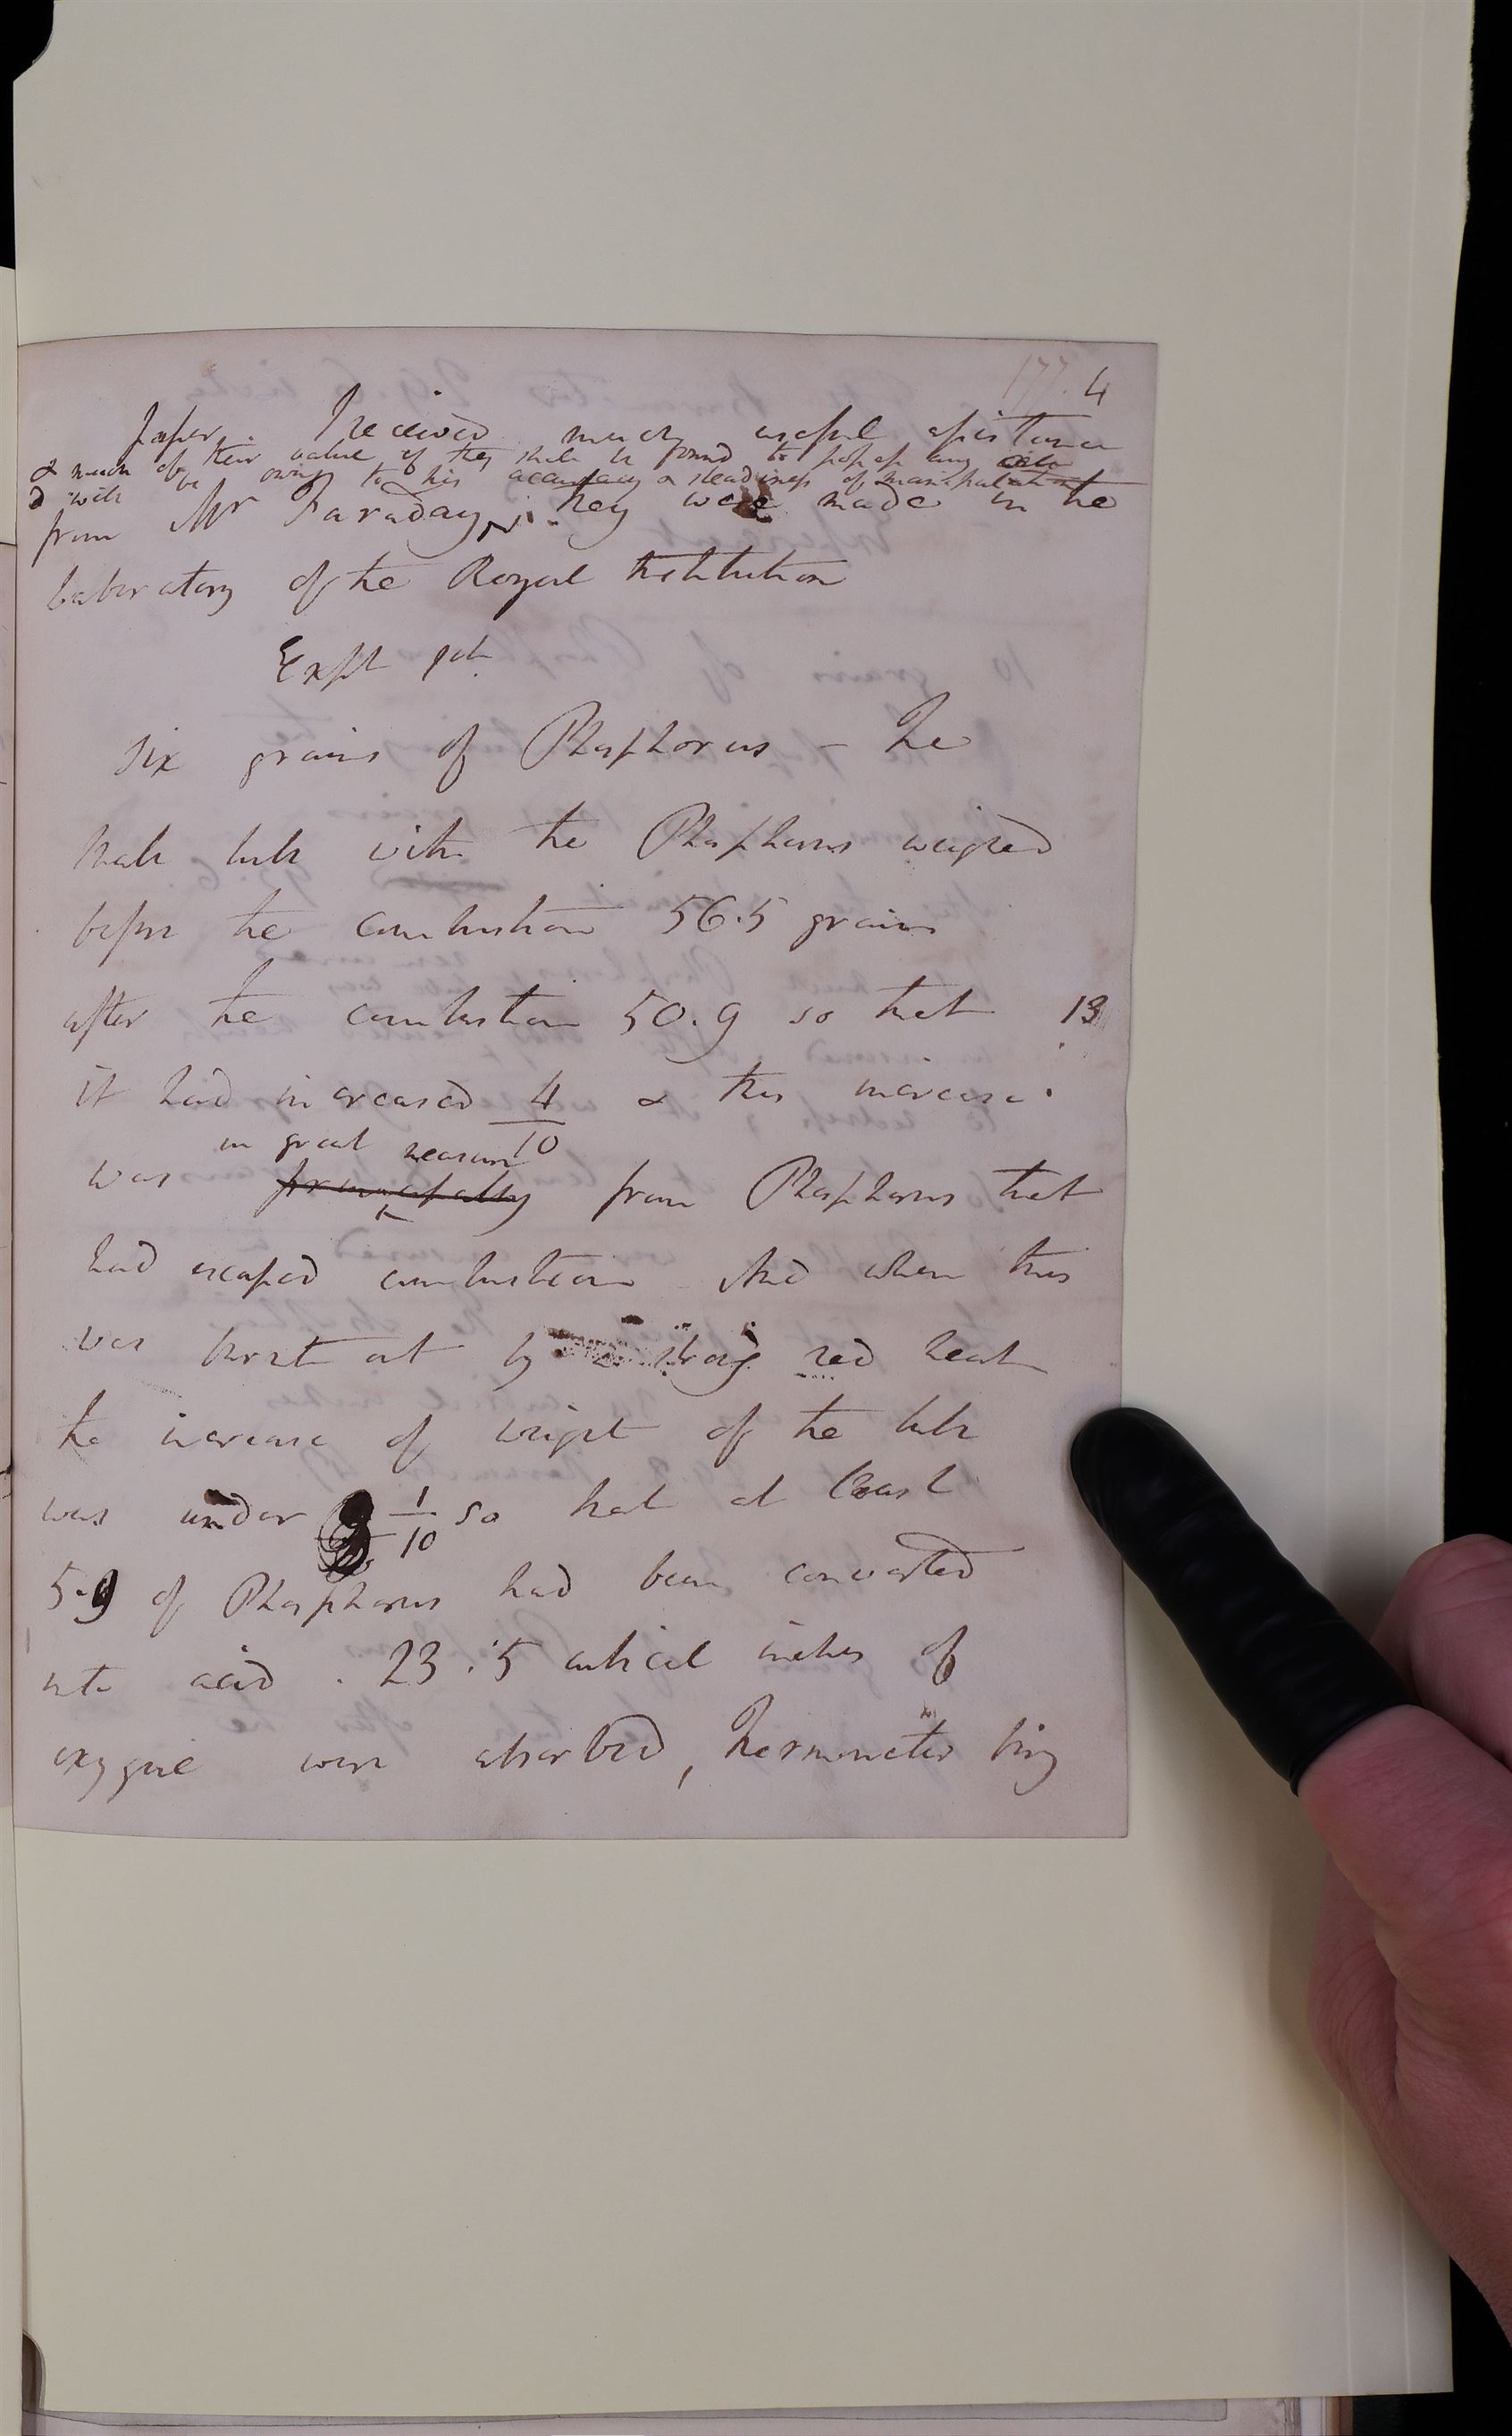 177. 4
paper. I received much useful assistance
& much of their value if they shall be found to possess any
will be owing to his accuracy & steadiness of manipulation
from Mr Faraday; they were made in the
laboratory of the Royal Institution
Expt 1st.
Six grains of Phosphorus – The
whole tube with the Phosphorus weighed
before the combustion 56.5 grains
after the combustion 50.9 so that 13
it had increased 4/10 & this increase
in great measure
was principally from Phosphorus that
had escaped combustion And when this
was burnt out by a strong red heat
the increase of weight of the tube
was under 1/10 so that at least
5.9 of Phosphorus had been converted
into acid. 23.5 cubical inches of
oxygene were absorbed, Thermometer being